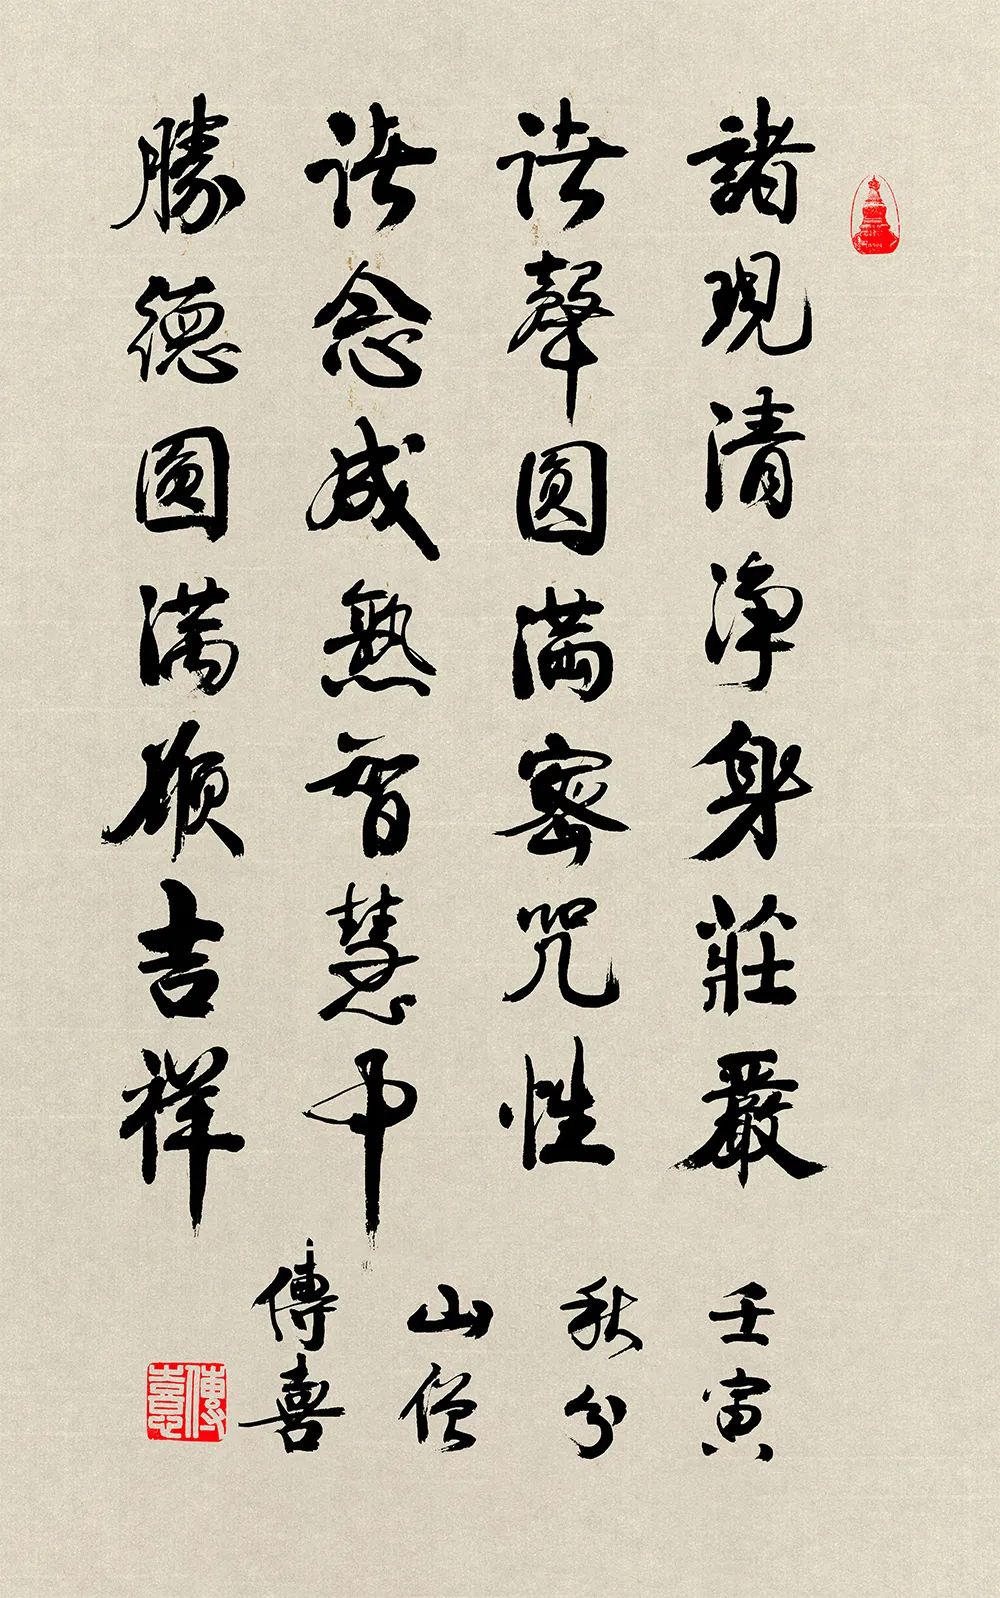 諸現清淨身莊嚴
诸聲圆满密咒性
诸念成熟智慧中
勝德圆满願吉祥
壬寅
秋分
山僧
傳喜
傳喜